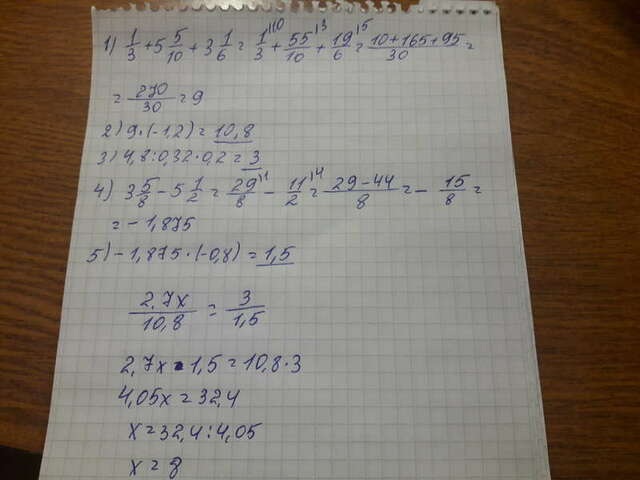 1) 1/3 + 5 5/10 + 3 1/6 = 1/3 |10 + 55/10 |3 + 19/6 |5 = (10+165+95)/30 =
= 270/30 = 9
2) 9·(-1,2) = 10,8
3) 4,8:0,32·0,2 = 3
4) 3 5/8 - 5 1/2 = 29/8 |1 - 11/2 |4 = (29-44)/8 = - 15/8 =
= -1,875
5) -1,875·(-0,8) = 1,5
2,7x/10,8 = 3/1,5
2,7x · 1,5 = 10,8·3
4,05x = 32,4
x = 32,4 : 4,05
x = 8